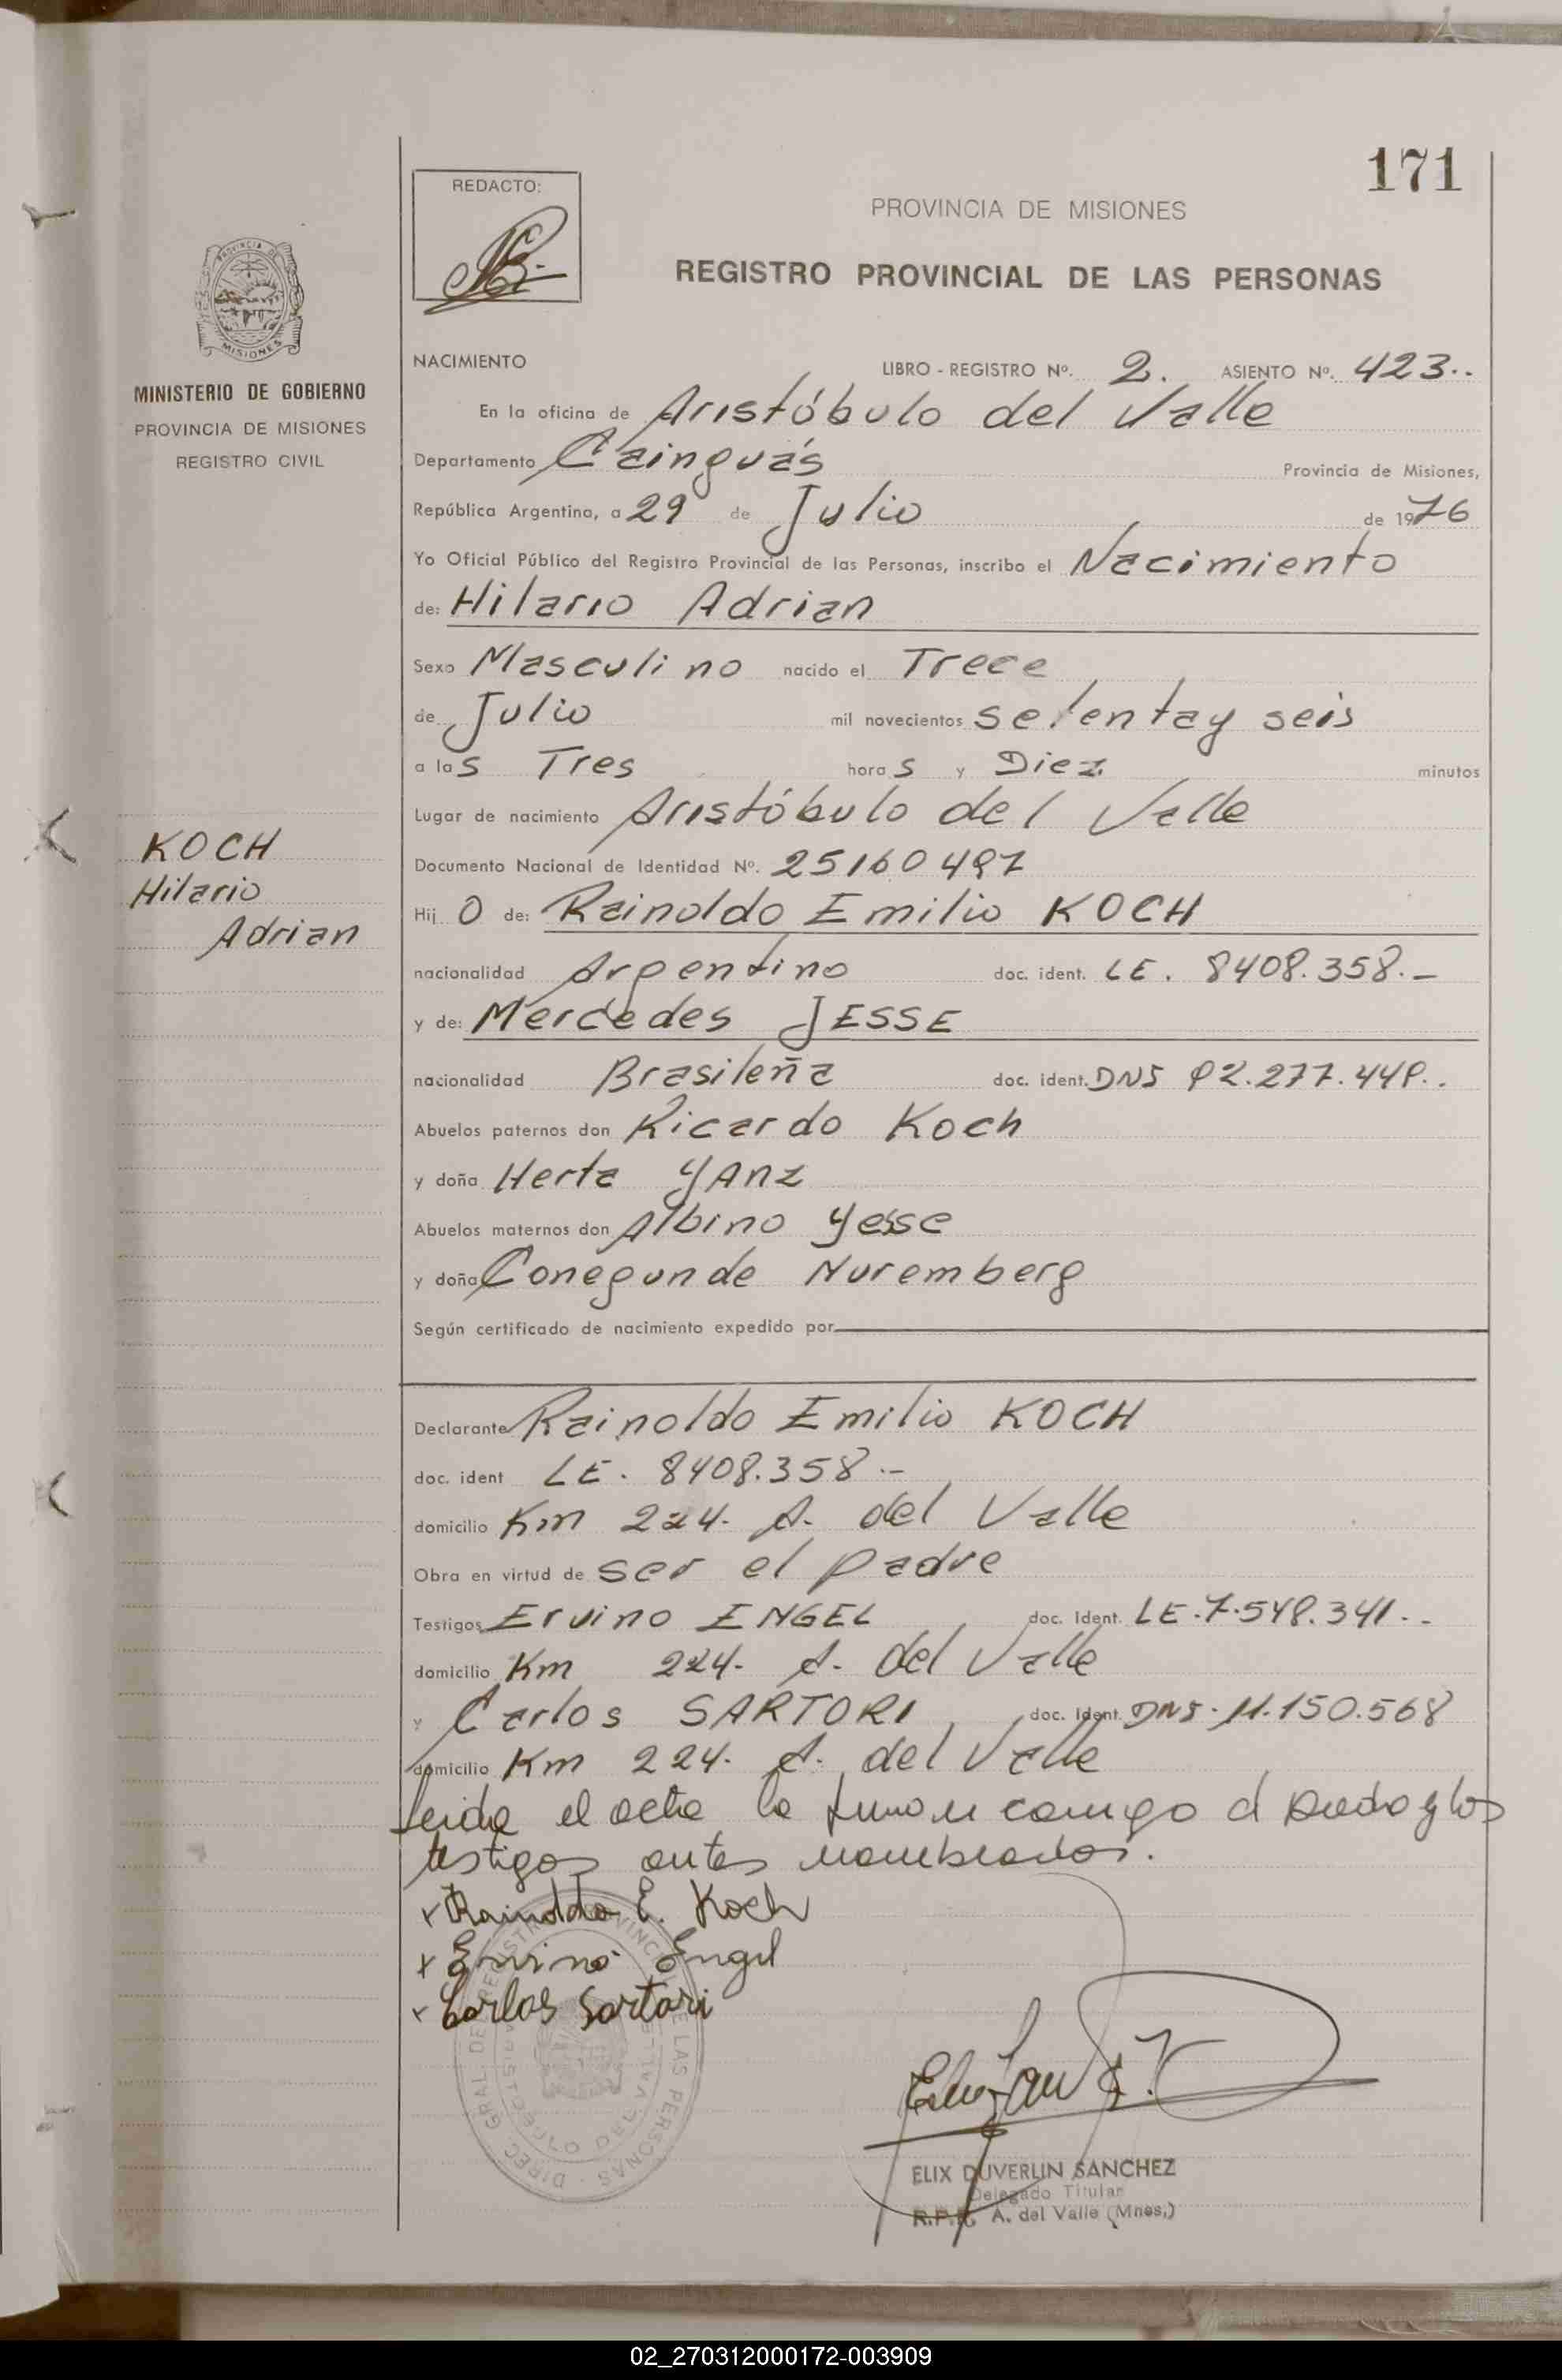 171
REDACTO:
PROVINCIA DE MISIONES
REGISTRO PROVINCIAL DE LAS PERSONAS
PROVINCIA DE
MISIONES
MINISTERIO DE GOBIERNO
PROVINCIA DE MISIONES
REGISTRO CIVIL
NACIMIENTO
LIBRO - REGISTRO Nº. 2. ASIENTO Nº. 423..
En la oficina de Aristóbulo del Valle
Departamento Cainguás Provincia de Misiones,
República Argentina, a 29 de Julio de 1976
Yo Oficial Público del Registro Provincial de las Personas, inscribo el Nacimiento
de: Hilario Adrian
Sexo Masculino nacido el Trece
de Julio mil novecientos setentay seis
a las Tres horas y Diez minutos
Lugar de nacimiento Aristóbulo del Valle
KOCH
Hilario
Adrian
Documento Nacional de Identidad Nº. 25160497
Hijo de: Rainoldo Emilio KOCH
nacionalidad Argentino doc. ident. LE. 8408.358.-
y de: Mercedes JESSE
nacionalidad Brasileña doc. ident. DNI 92.277.449..
Abuelos paternos don Ricardo Koch
y doña Herta YAnz
Abuelos maternos don Albino Yesse
y doña Conegunde Nuremberg
Según certificado de nacimiento expedido por
Declarante Rainoldo Emilio KOCH
doc. ident LE. 8408.358.-
domicilio Km 224. A. del Valle
Obra en virtud de ser el padre
Testigos Ervino ENGEL doc. Ident. LE.7.548.341..
domicilio Km 224. A. del Valle
y Carlos SARTORI, doc. Ident. DNI. 11.150.568
domicilio Km 224. A. del Valle
leida el acta la firman conmigo el padre y los
testigos antes nombrados.
x Rainoldo E. Koch
x Ervino Engel
x Carlos Sartori
DIREC. GRAL. DE REGISTRO PROVINCIAL DE LAS PERSONAS
ELIX DUVERLIN SANCHEZ
Delegado Titular
R.P.P. A. del Valle (Mnes,)
02_270312000172-003909